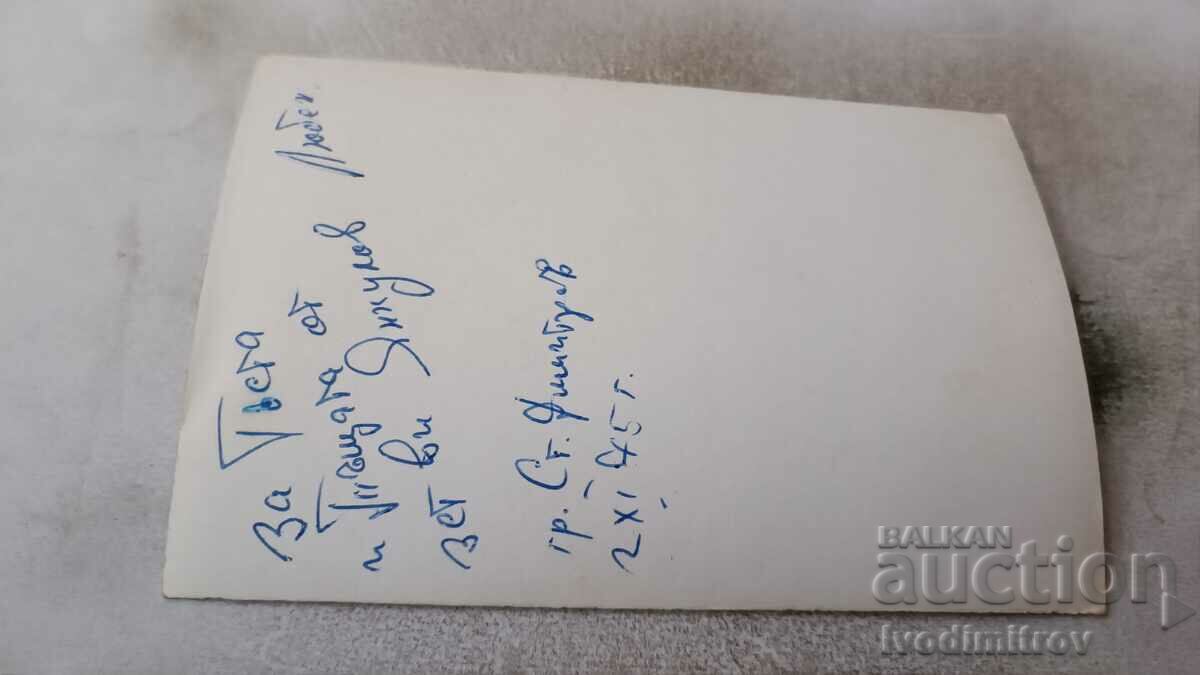 За Тъста
и Тъщата от
зет ви Янкулов Любен.
гр. Ст. Димитров
2 XI 75 г.
BALKAN
auction
Ivodimitrov